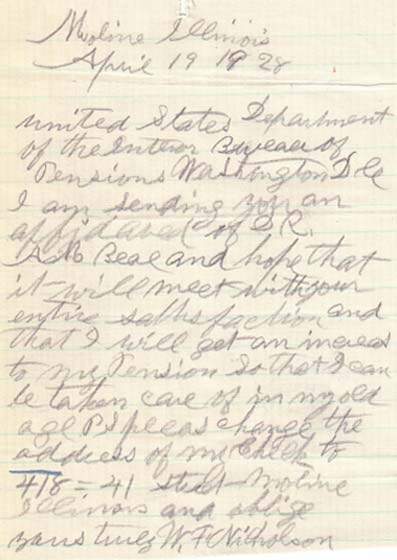 Moline Illinois
April 19 1928
united States Department
of the Interor Bureau of
Pensions Washington D.C.
I am sending you an
affidaved of D.R.
A.M. Beal and hope that
it will meet with your
entire sattisfaction and
that I will get an increas
to my Pension so that I can
be taken care of in my old
age Ps pleas change the
address of my Check to
418 = 41 street - Moline
Illinois and oblige
yours truly W. F. Nicholson